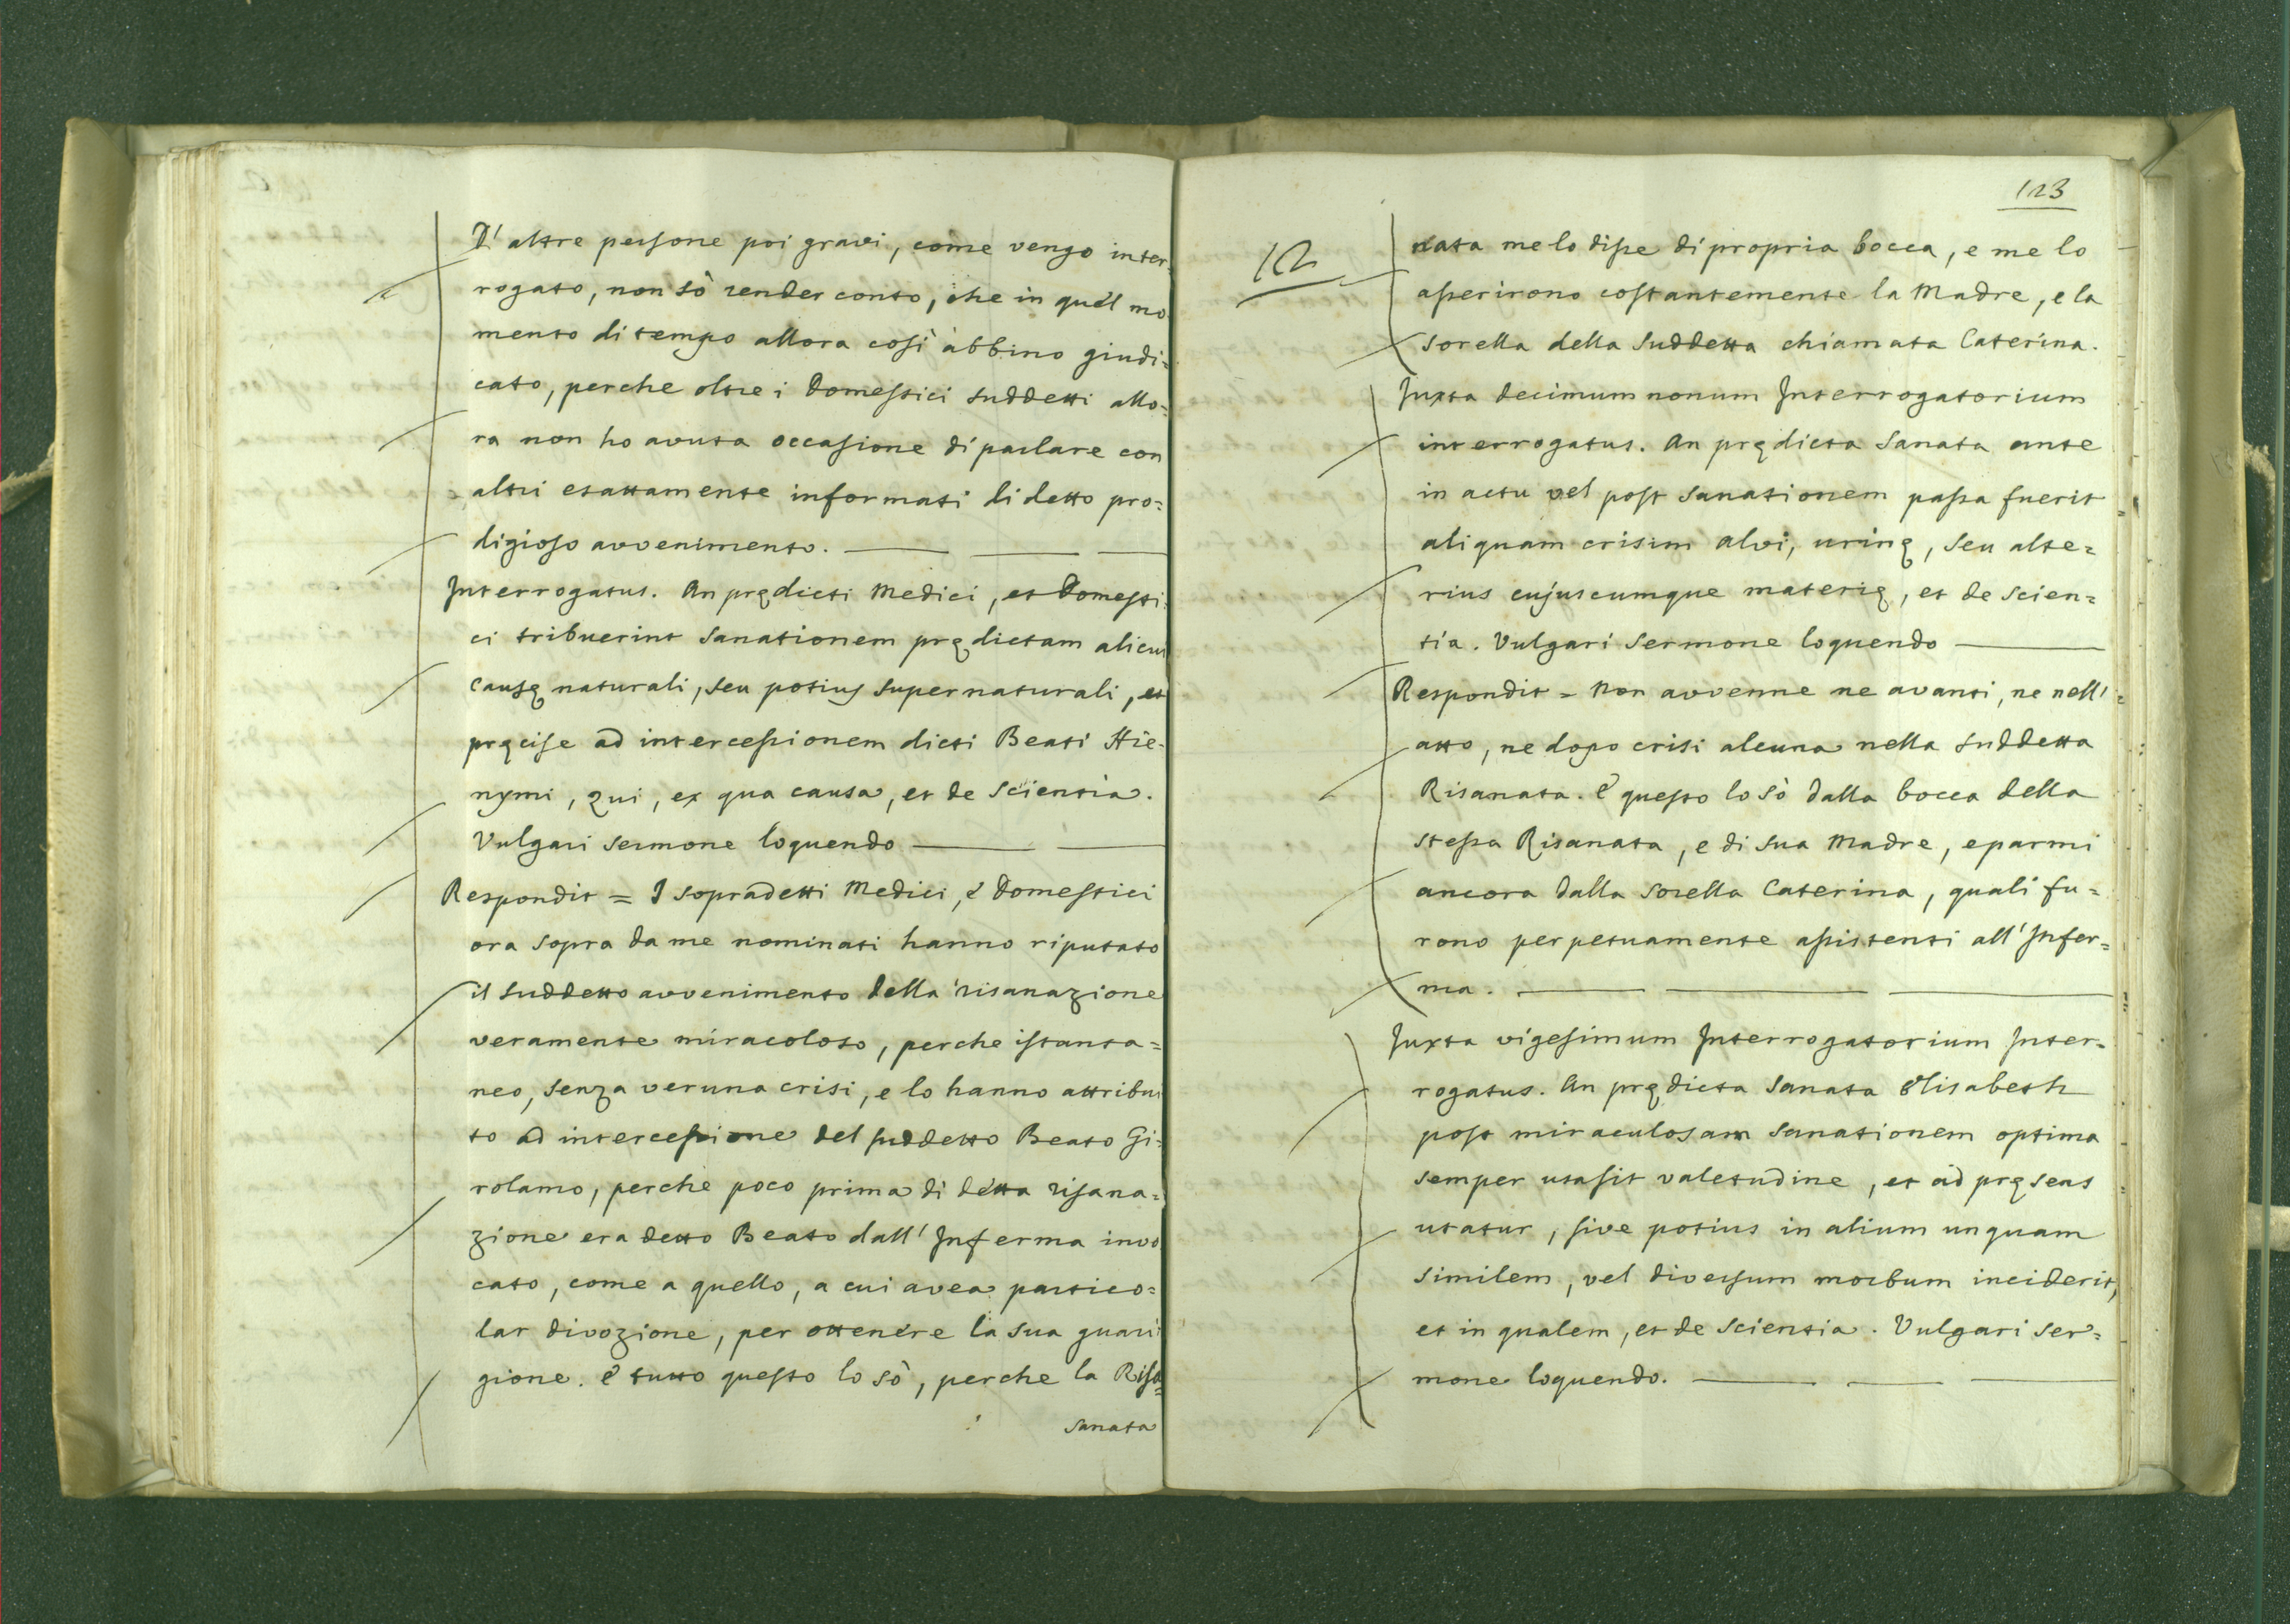 D'altre persone poi gravi, come vengo inter=
rogato, non sò render conto, che in quel mo
mento di tempo allora così abbino giudi=
cato, perche oltre i Domestici suddetti allo=
ra non ho avuta occasione di parlare con
altri esattamente informati di detto pro=
digioso avvenimento.
Interrogatus. An prędicti Medici, et Domesti=
ci tribuerint sanationem prędictam alicui
causę naturali, seu potius supernaturali, et
pręcise ad intercessionem dicti Beati Hie=
nymi, qui, ex qua causa, et de scientia.
Vulgari sermone loquendo
Respondit = I sopradetti Medici, e Domestici
ora sopra da me nominati hanno riputato
il suddetto avvenimento della risanazione
veramente miracoloso, perche istanta=
neo, senza veruna crisi, e lo hanno attribui
to ad intercessione del suddetto Beato Gi=
rolamo, perche poco prima di detta risana=
zione era detto Beato dall'Inferma invo
cato, come a quello, a cui avea partico=
lar divozione, per ottenere la sua guari
gione. E tutto questo lo sò, perche la Risa=
sanata
123
12
nata me lo disse di propria bocca, e me lo
asserirono costantemente la Madre, e la
sorella della suddetta chiamata Caterina.
Juxta decimum nonum Interrogatorium
interrogatus. An prędicta Sanata ante
in actu vel post sanationem passa fuerit
aliquam crisim alvi, urinę, seu alte=
rius cujuscumque materię, et de scien=
tia. Vulgari sermone loquendo
Respondit = Non avvenne ne avanti, ne nell'
atto, ne dopo crisi alcuna nella suddetta
Risanata. E questo lo sò dalla bocca della
stessa Risanata, e di sua Madre, e parmi
ancora dalla sorella Caterina, quali fu=
rono perpetuamente assistenti all'Infer=
ma.
Juxta vigesimum Interrogatorium Inter=
rogatus. An prędicta Sanata Elisabeth
post miraculosam sanationem optima
semper usa sit valetudine, et ad pręsens
utatur, sive potius in alium unquam
similem, vel diversum morbum inciderit,
et in qualem, et de scientia. Vulgari ser=
mone loquendo.